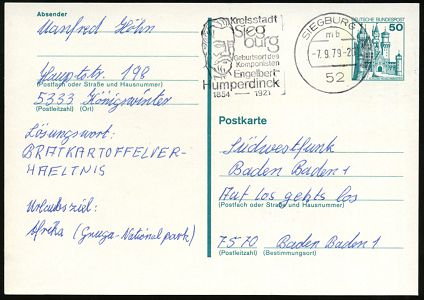 Absender
Manfred Höhn
Hauptstr. 198
(Postfach oder Straße und Hausnummer)
5333 Königswinter
(Postleitzahl) (Ort)
Lösungswort:
BRATKARTOFFELVER-
HAELTNIS
Urlaubsziel:
Afrika (Gnuga-Nationalpark)
Kreisstadt
Sieg
burg
Geburtsort des
Komponisten
Engelbert
Humperdinck
1854 — 1921
SIEGBURG
mb
-7.9.79-2
52
DEUTSCHE BUNDESPOST
50
Postkarte
Südwestfunk
Baden Baden 1
Auf los gehts los
(Postfach oder Straße und Hausnummer)
7570 Baden Baden 1
(Postleitzahl) (Bestimmungsort)